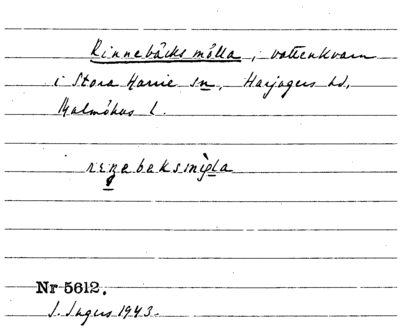 Rinnebäcks mölla, vattenkvarn
i Stora Harrie sn, Harjagers hd,
Malmöhus l.
Nr 5612.
J. Ingers 1943.